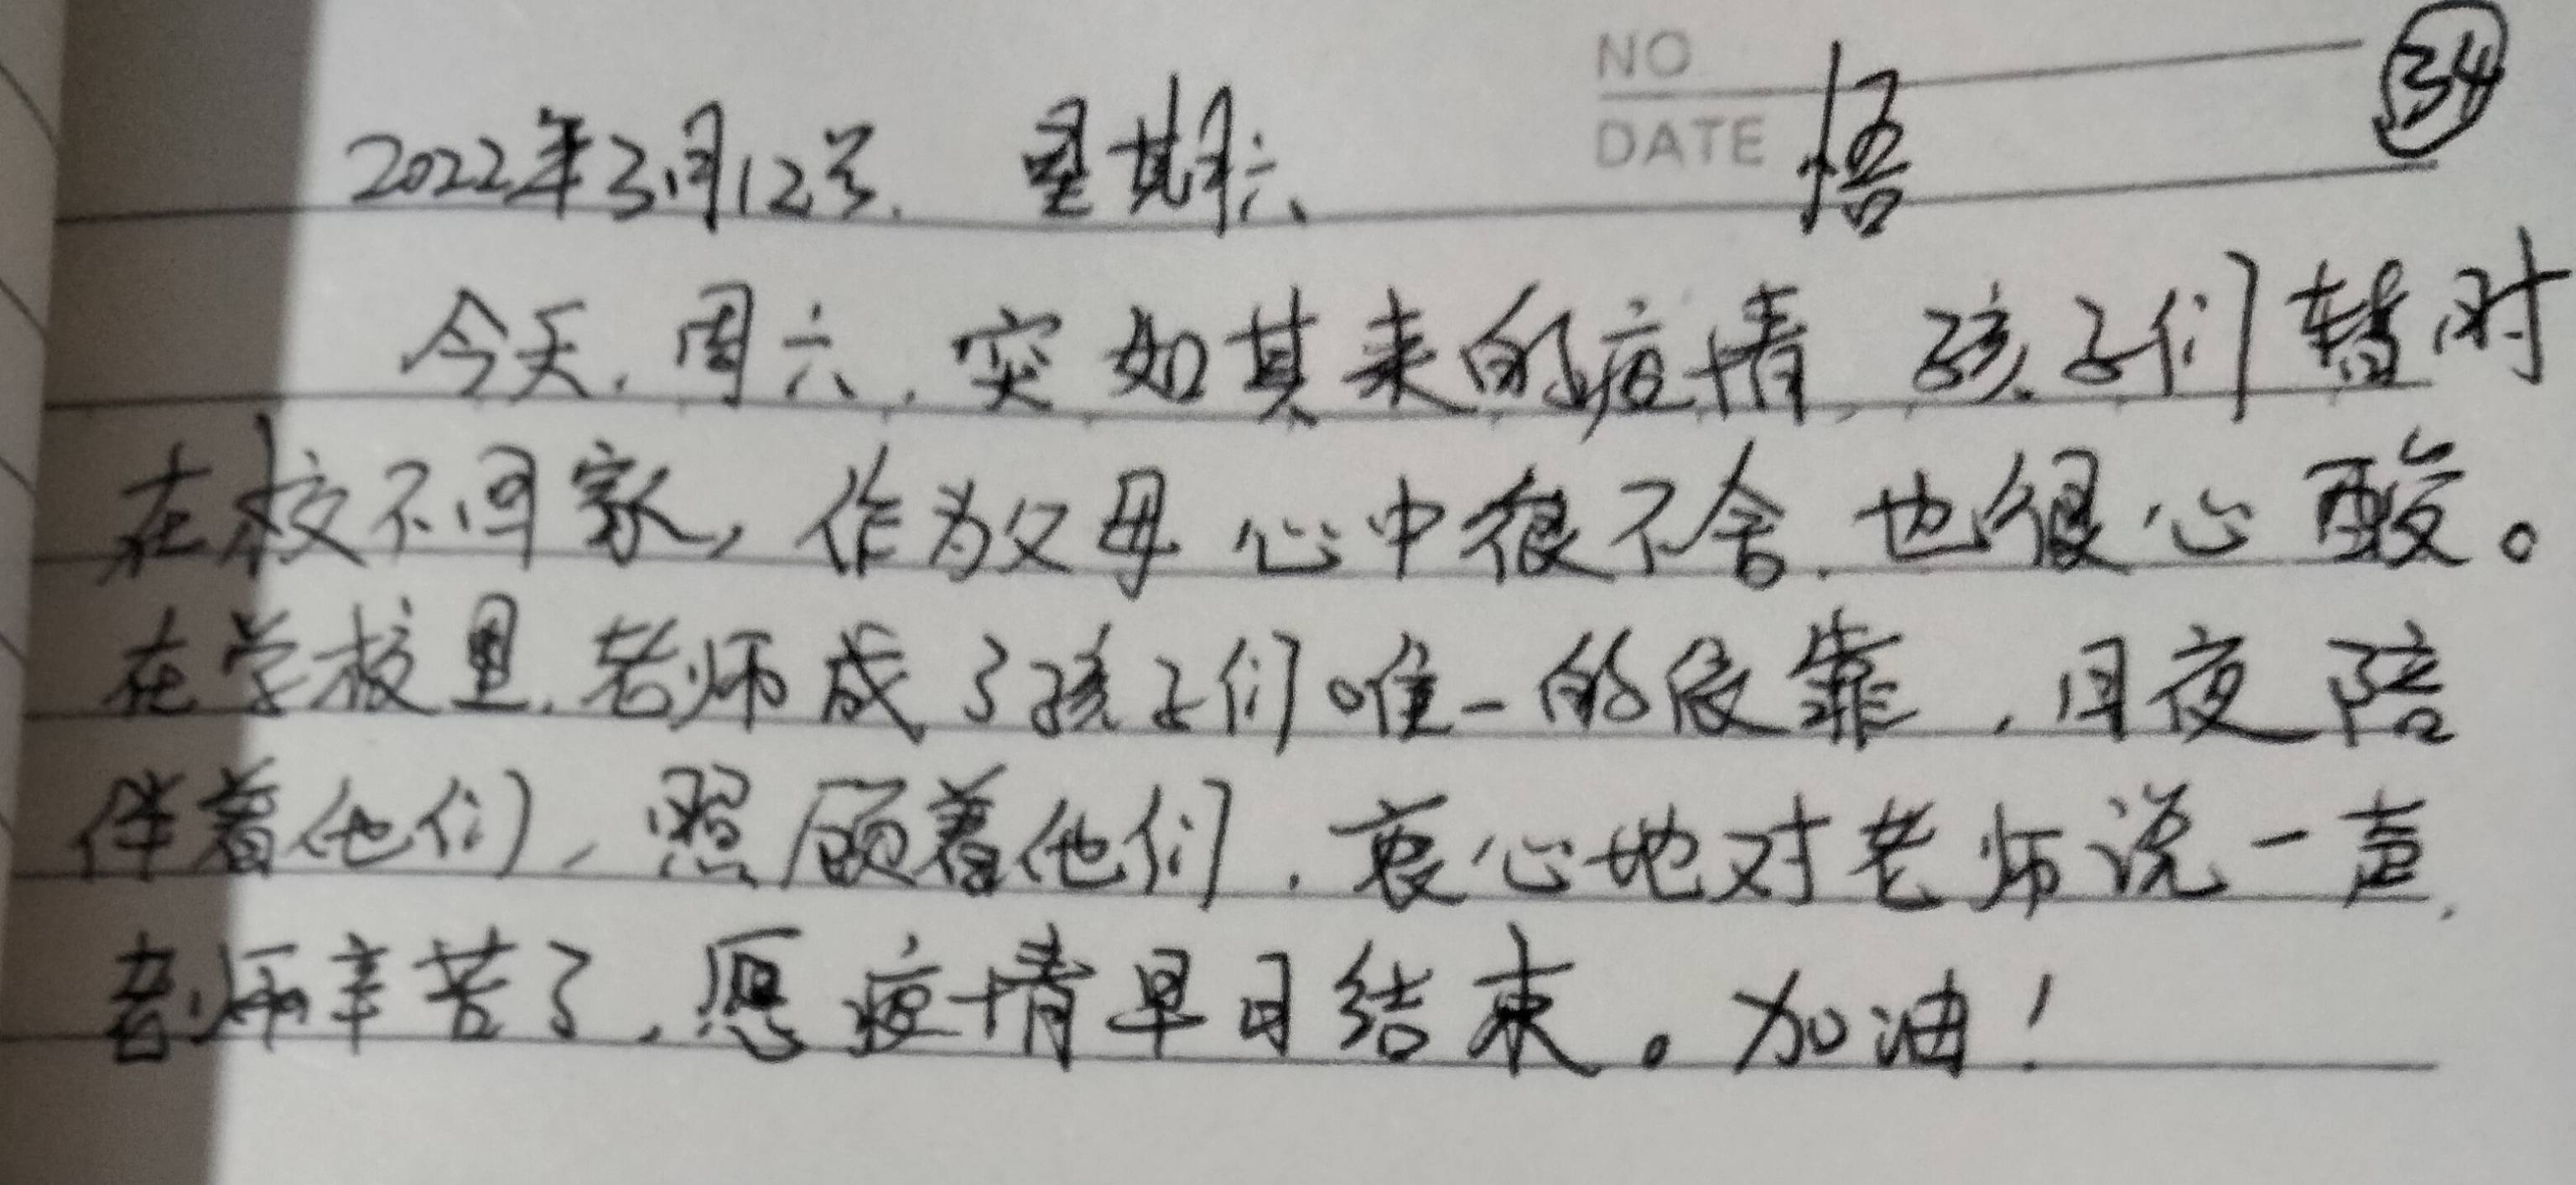 NO
㉞
DATE 悟
2022年3月12号. 星期六
今天,周六,突如其来的疫情,孩子们暂时
在校不回家,作为父母心中很不舍.也很心酸。
在学校里.老师成了孩子们唯一的依靠,日夜陪
伴着他们,照顾着他们,衷心地对老师说一声,
老师辛苦了,愿疫情早日结束。加油!